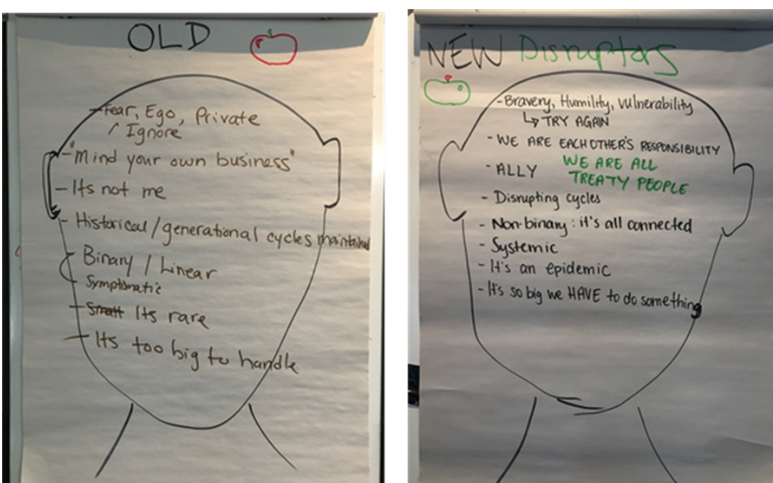 OLD
-Fear, Ego, Private
Ignore
-"Mind your own business"
- Its not me
- Historical/generational cycles maintained
Binary / Linear
Symptomatic
- Small Its rare
- Its too big to handle
NEW Disruptors
- Bravery, Humility, Vulnerability
↳ TRY AGAIN
- WE ARE EACHOTHER'S RESPONSIBILITY
- ALLY WE ARE ALL
TREATY PEOPLE
- Disrupting cycles
- Non-binary: it's all connected
- Systemic
- It's an epidemic
- It's so big we HAVE to do something